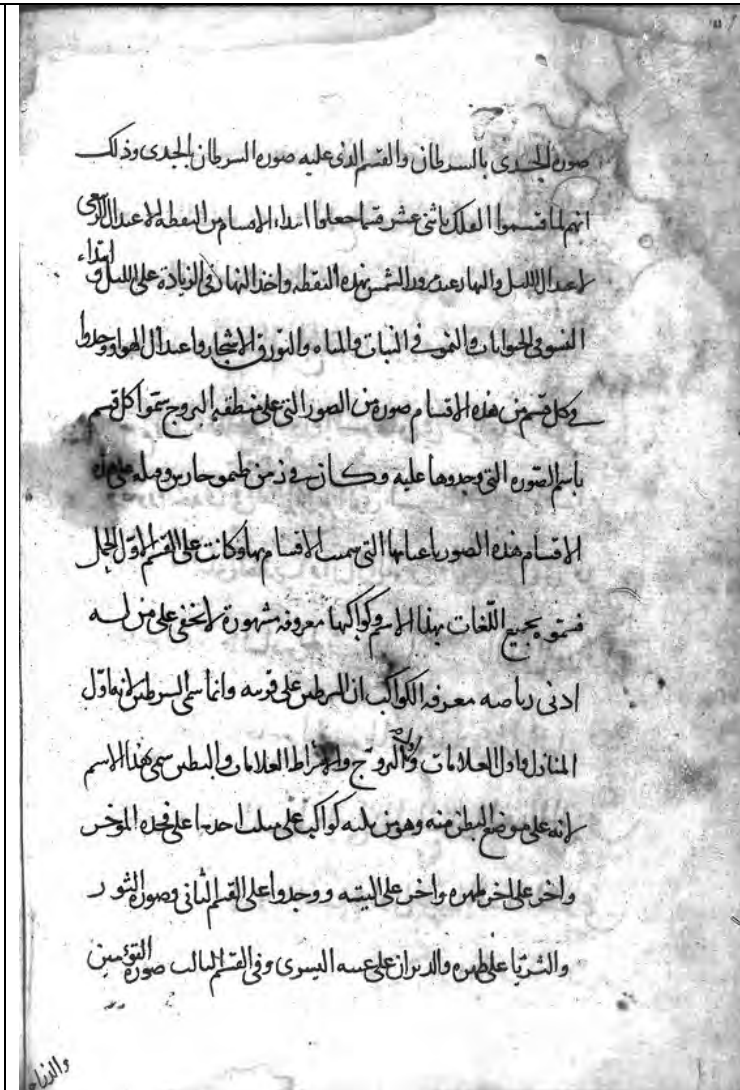 صورة الجدى بالسرطان والقسم الذى عليه صورة السرطان الجدى وذلك
انهم لما قسموا الفلك باثنى عشر قسما جعلوا ابتداء الاقسام من النقطه الاعتدال الربيعى
لاعتدال الليل والنهار عند ورود الشمس بهذه النقطه واخذ النهار فى الزيادة على الليل وابتداء
النسو فى الحيوانات والنمو فى النبات والمياه والتورق الاشجار واعتدال الهواء ووجدوا
فى كل قسم من هذه الاقسام صورة من الصور التى على منطقه البروج سموا كل قسم
باسم الصوره التى وجدوها عليه وكان فى زمن طيموخارس وقبله على هذه
الاقسام هذه الصور باعيانها التى سميت الاقسام بها وكانت على القسم الاول الحمل
فسموه بجميع اللغات بهذا الاسم وكواكبها معروفه مشهورة لا تخفى على من له
ادنى رياضه معرفه الكواكب ان الشرطين على قرنيه وانما سمى الشرطين لانه اول
المنازل واول العلامات البروج والاشراط العلامات والبطين سمى بهذا الاسم
لانه على موضع البطن منه وهو من ثلثه كواكب على مثلث احديها على فخذه الموخر
واخر على اخر ظهره واخر على اليته ووجدوا على القسم الثانى وصورة الثور
والثريا على ظهره والدبران على عينه اليسرى وفى القسم الثالث صورة التوءمين